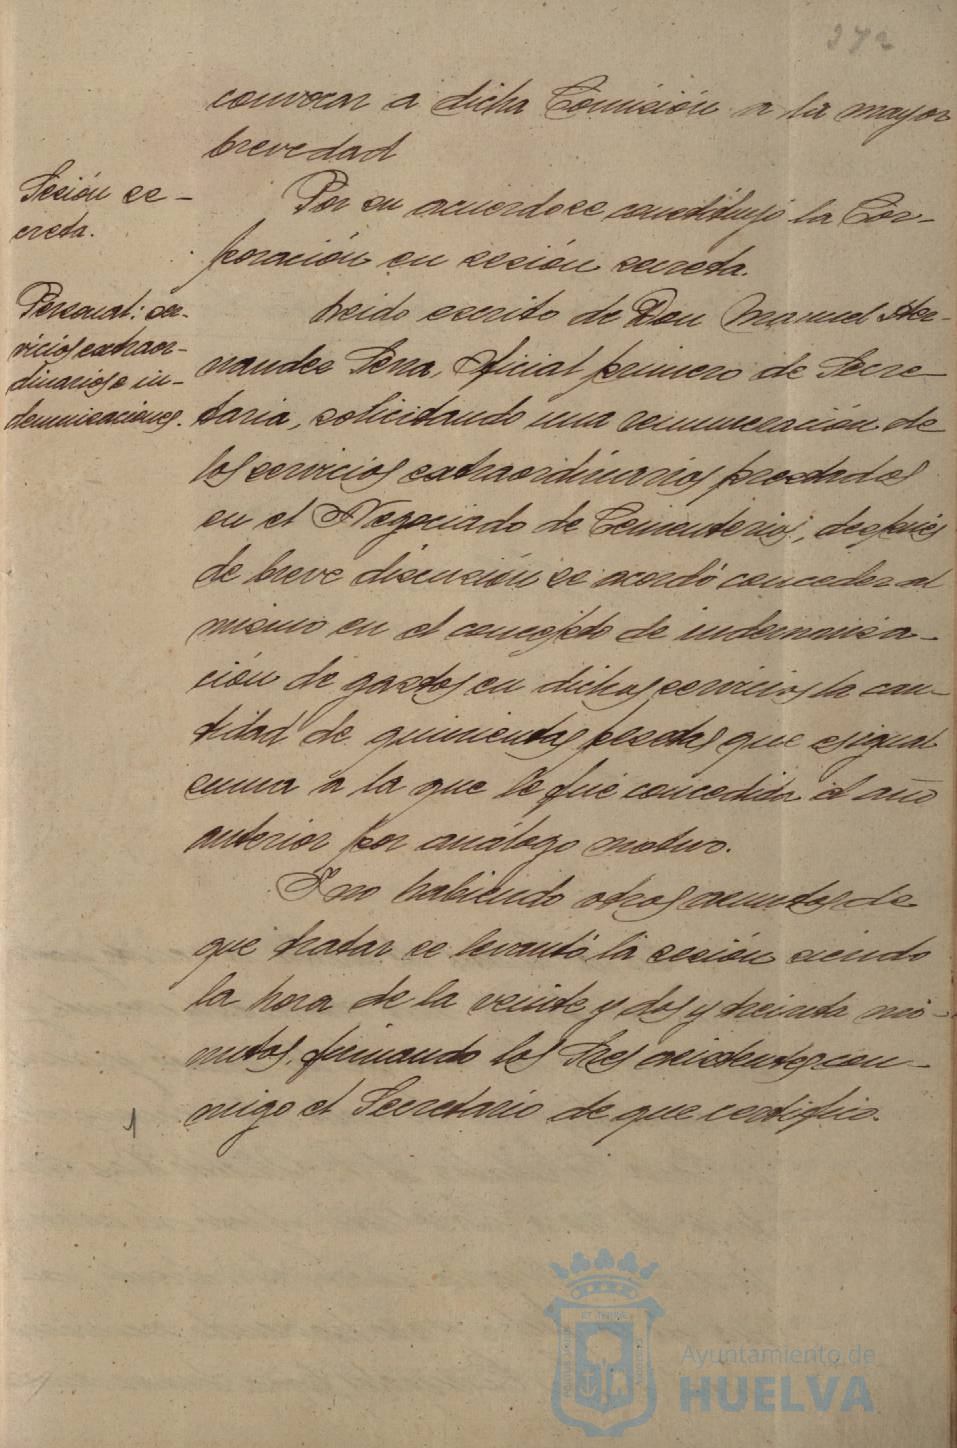 272
convocar a dicha Comisión a la mayor
brevedad
Sesión se-
creta.
Por su acuerdo se constituyó la Cor-
poración en sesión secreta.
Personal: ser-
vicios extraor-
dinarios e in-
demnizaciones.
Leido escrito de Don Manuel Her-
nandez Serra, Oficial primero de Secre-
taria, solicitando una remuneración de
los servicios extraordinarios prestados
en el Negociado de Cementerios, después
de breve discusión se acordó conceder al
mismo en el concepto de indemniza-
ción de gastos en dichos servicios la can-
tidad de quinientas pesetas que es igual
suma a la que le fué concedida el año
anterior por análogo motivo.
Y no habiendo otros asuntos de
que tratar se levantó la sesión siendo
la hora de la veinte y dos y treinta mi-
nutos, firmando los Sres asistentes con-
migo el Secretario de que certifico.
1
Ayuntamiento de
HUELVA